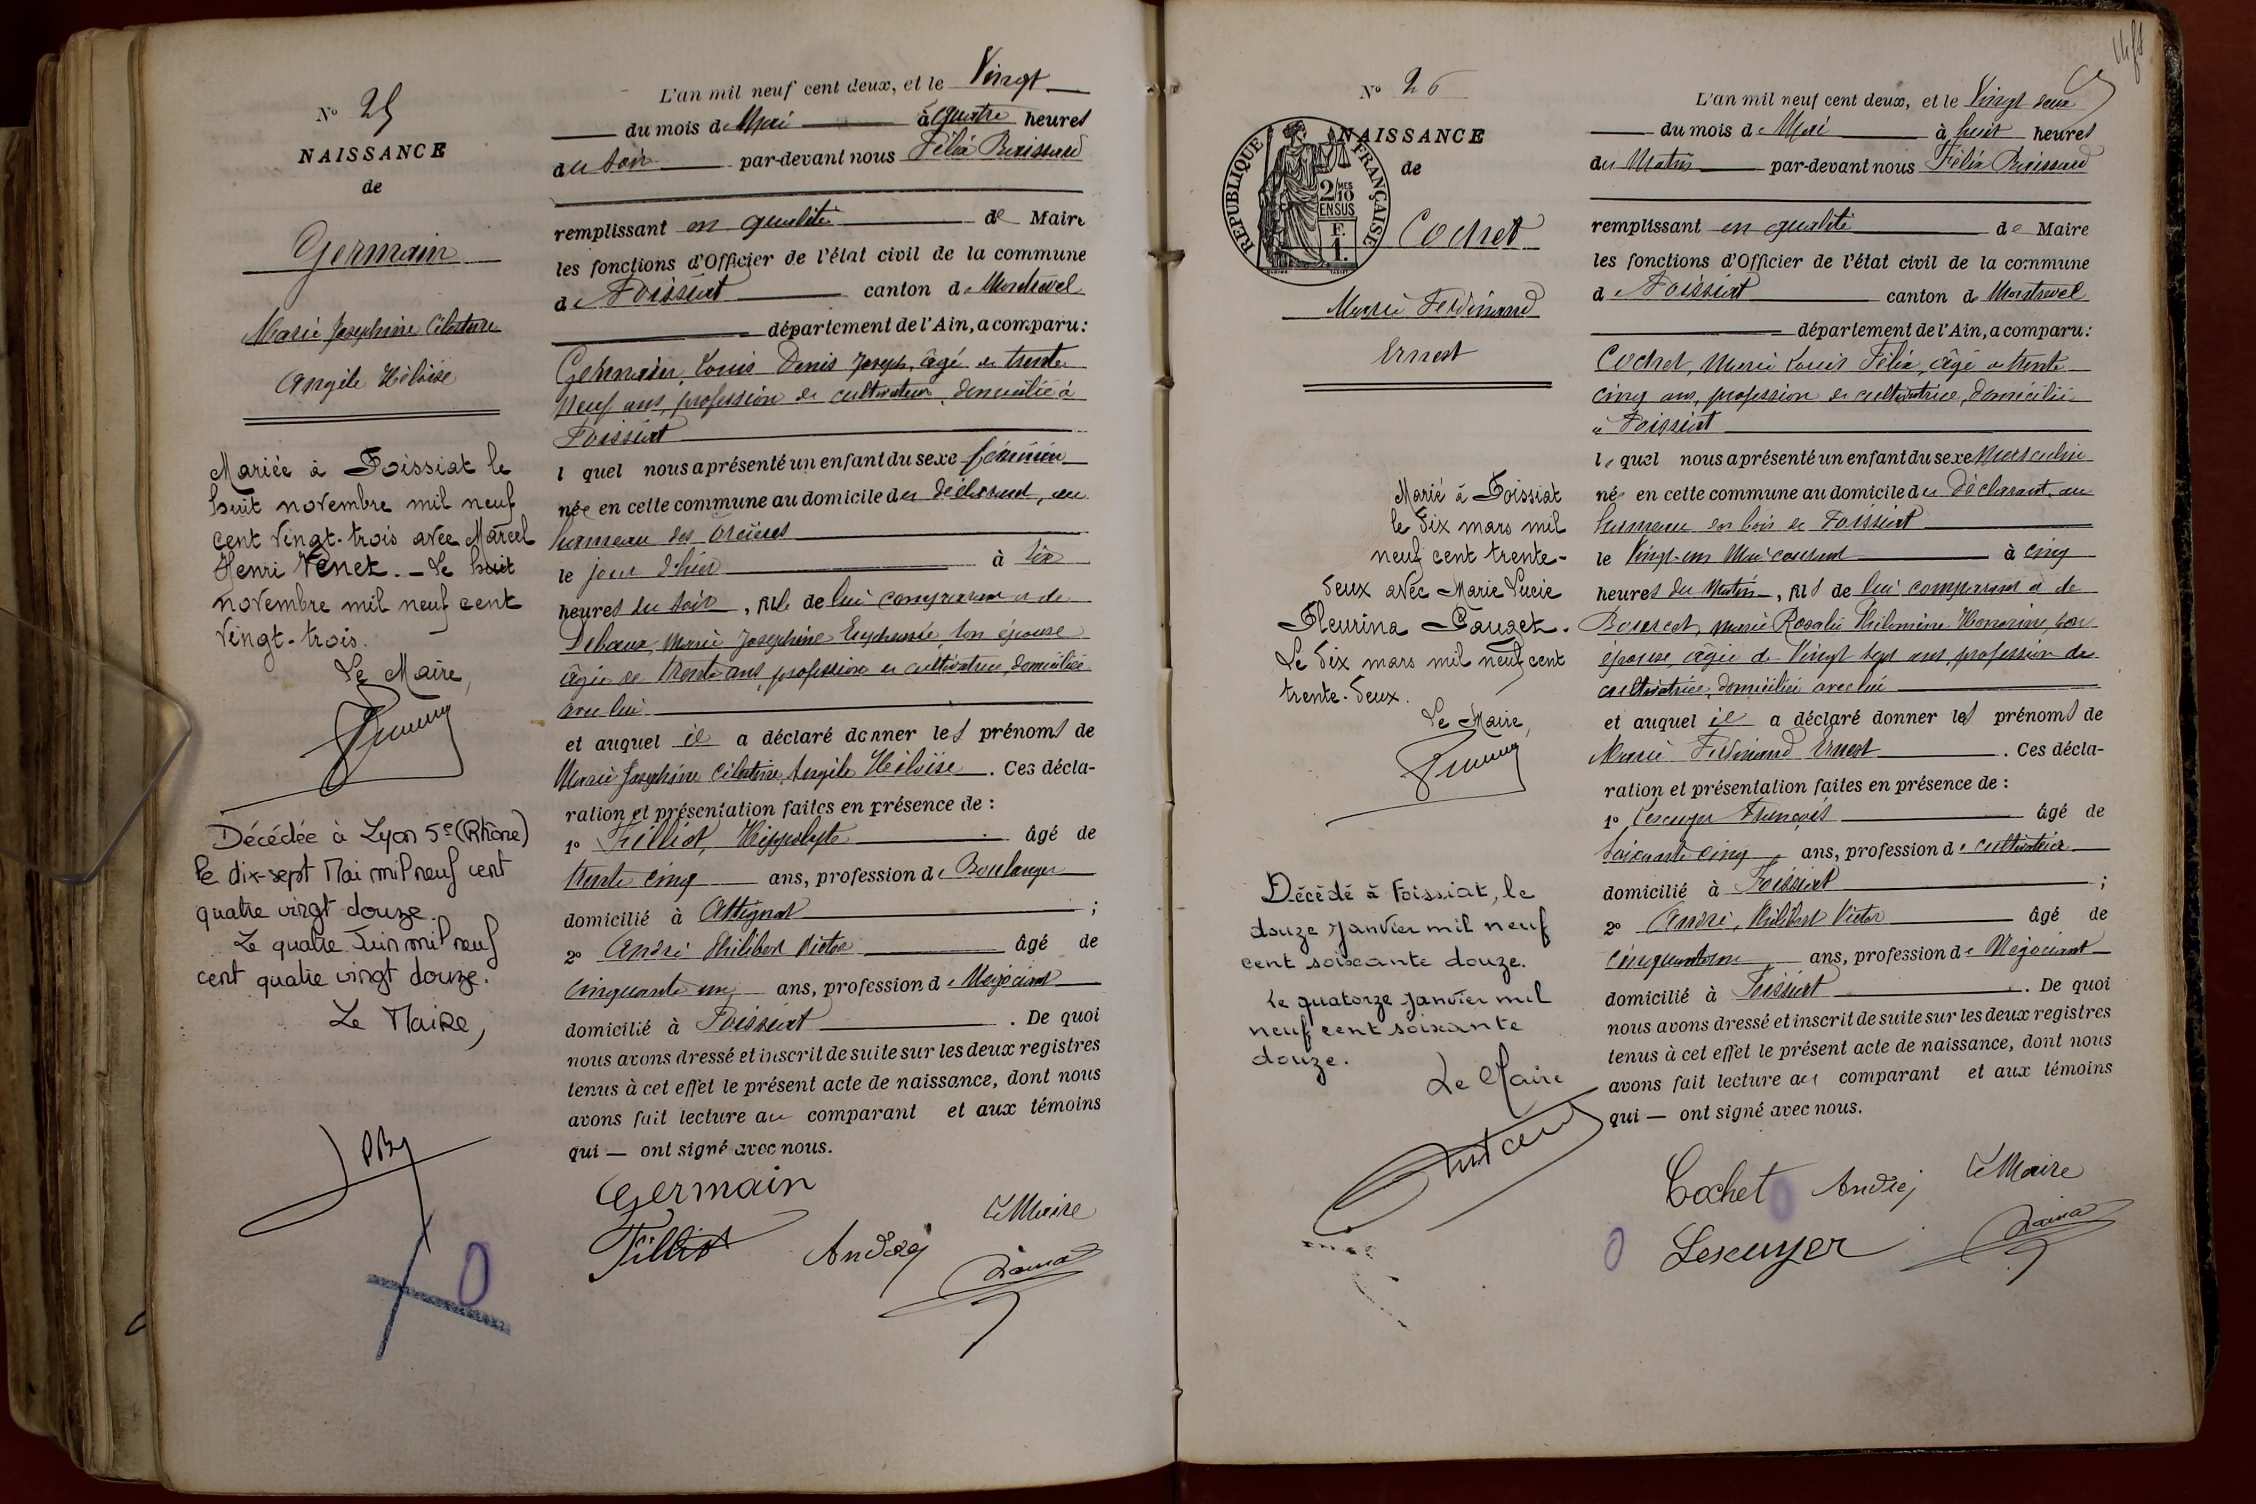 N° 25
NAISSANCE
de
Germain
Marie Josephine Célestine
Angèle Héloïse
Mariée à Foissiat le
huit novembre mil neuf
cent vingt-trois avec Marcel
Henri Venet. - Le huit
novembre mil neuf cent
vingt-trois.
Le Maire,
Décédée à Lyon 5e (Rhône)
le dix-sept Mai mil neuf cent
quatre vingt douze.
Le quatre Juin mil neuf
cent quatre vingt douze.
Le Maire,
L'an mil neuf cent deux, et le Vingt
du mois de Mai à quatre heures
du soir par-devant nous Félix
remplissant en qualité de Maire
les fonctions d'Officier de l'état civil de la commune
de Foissiat canton de Montrevel
département de l'Ain, a comparu :
Germain, Louis Denis Joseph, âgé de trente
neuf ans, profession de cultivateur, domicilié à
Foissiat
l quel nous a présenté un enfant du sexe féminin
née en cette commune au domicile du déclarant, au
hameau des
le jour d'hier à six
heures du soir, fille de lui comparant et de
Marie Josephine son épouse
âgée de trente ans, profession de cultivatrice, domiciliée
avec lui
et auquel il a déclaré donner les prénoms de
Marie Josephine Célestine Angèle Héloïse. Ces décla-
ration et présentation faites en présence de :
1° Filliot, Hippolyte âgé de
trente cinq ans, profession de Boulanger
domicilié à Attignat ;
2° André Philibert Victor âgé de
cinquante un ans, profession de Négociant
domicilié à Foissiat. De quoi
nous avons dressé et inscrit de suite sur les deux registres
tenus à cet effet le présent acte de naissance, dont nous
avons fait lecture au comparant et aux témoins
qui — ont signé avec nous.
Germain
Le Maire
Filliot André
N° 26
NAISSANCE
de
RÉPUBLIQUE FRANÇAISE
2/10 MES
EN SUS
F.
1.
Cochet
Marie Ferdinand
Ernest
Marié à Foissiat
le dix mars mil
neuf cent trente-
deux avec Marie Lucie
Fleurina Pauget.
Le dix mars mil neuf cent
trente-deux.
Le Maire,
Décédé à Foissiat, le
douze Janvier mil neuf
cent soixante douze.
Le quatorze Janvier mil
neuf cent soixante
douze.
Le Maire
L'an mil neuf cent deux, et le Vingt deux
du mois de Mai à huit heures
du Matin par-devant nous Félix
remplissant en qualité de Maire
les fonctions d'Officier de l'état civil de la commune
de Foissiat canton de Montrevel
département de l'Ain, a comparu :
Cochet, Marie Louis Félix, âgé de trente
cinq ans, profession de cultivatrice, domicilié
à Foissiat
le quel nous a présenté un enfant du sexe Masculin
né en cette commune au domicile du déclarant, au
hameau du bois de Foissiat
le Vingt-un Mai courant à cinq
heures du Matin, fils de lui comparant et de
Marie Rosalie Philomène Honorine, son
épouse, âgée de Vingt sept ans, profession de
cultivatrice, domiciliée avec lui
et auquel il a déclaré donner les prénoms de
Marie Ferdinand Ernest. Ces décla-
ration et présentation faites en présence de :
1° Lescuyer François âgé de
soixante cinq ans, profession de cultivateur
domicilié à Foissiat ;
2° André, Philibert Victor âgé de
cinquante un ans, profession de Négociant
domicilié à Foissiat. De quoi
nous avons dressé et inscrit de suite sur les deux registres
tenus à cet effet le présent acte de naissance, dont nous
avons fait lecture au comparant et aux témoins
qui — ont signé avec nous.
Cochet André Le Maire
Lescuyer